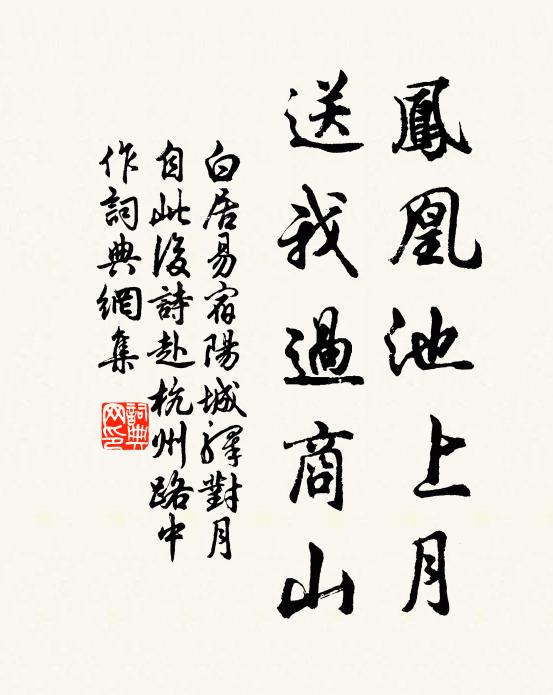 鳳凰池上月
送我過商山
白居易宿陽城驛對月
自此後詩赴杭州路中
作詞典網集
詞典網印